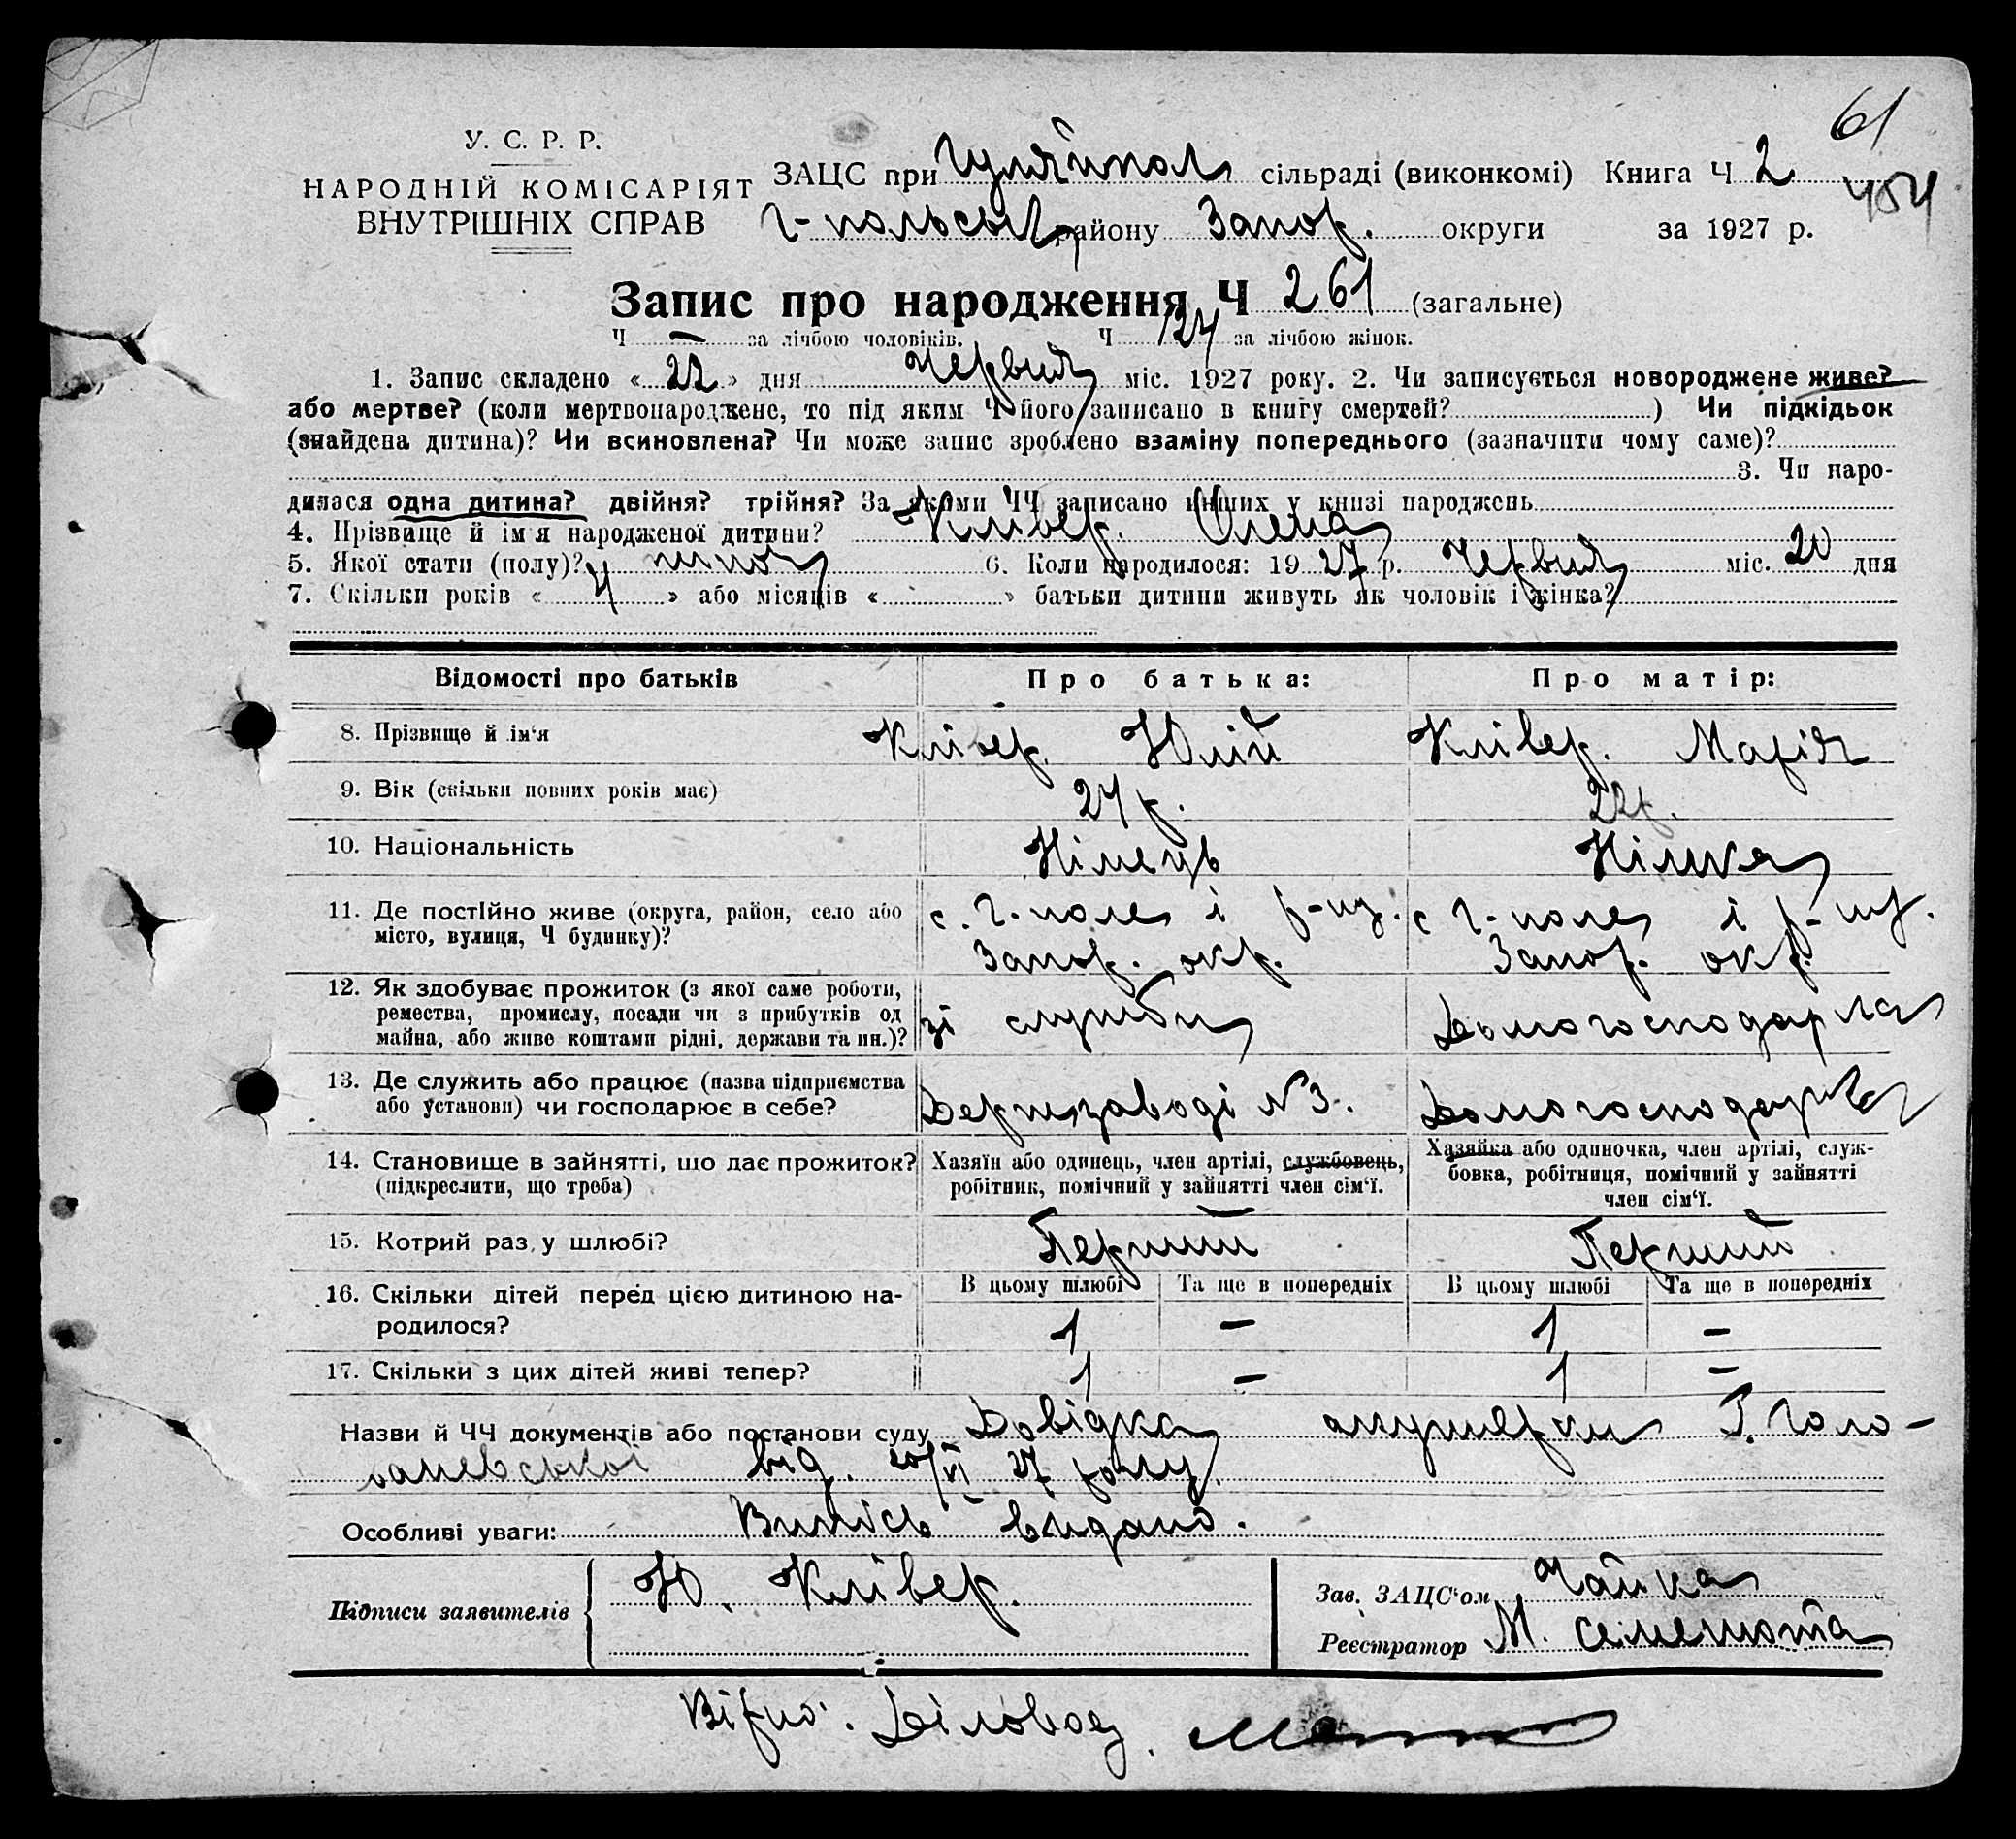 61
454
У. С. Р. Р.
НАРОДНІЙ КОМІСАРІЯТ
ВНУТРІШНІХ СПРАВ
ЗАЦС при Гуляйпол сільраді (виконкомі) Книга Ч 2
Г-польськ району Запор. округи за 1927 р.
Запис про народження Ч 261 (загальне)
Ч — за лічбою чоловіків. Ч 124 за лічбою жінок.
1. Запис складено « 22 » дня Червня міс. 1927 року. 2. Чи записується новороджене живе?
або мертве? (коли мертвонароджене, то під яким Ч його записано в книгу смертей? ) Чи підкідьок
(знайдена дитина)? Чи всиновлена? Чи може запис зроблено взаміну попереднього (зазначити чому саме)?
3. Чи наро-
дилася одна дитина? двійня? трійня? За якими ЧЧ записано инших у книзі народжень
4. Прізвище й ім'я народженої дитини? Клівер. Олена
5. Якої стати (полу)? жіноч 6. Коли народилося: 19 27 р. Червня міс. 20 дня
7. Скільки років « 4 » або місяців « » батьки дитини живуть як чоловік і жінка?
Відомості про батьків Про батька: Про матір:
8. Прізвище й ім'я Клівер. Юлій Клівер. Марія
9. Вік (скільки повних років має) 24 р. 22 р.
10. Національність Німець Німка
11. Де постійно живе (округа, район, село або с. Г-поле і р-ну. с Г-поле і р-ну.
місто, вулиця, Ч будинку)? Запор. окр. Запор. окр.
12. Як здобуває прожиток (з якої саме роботи,
ремества, промислу, посади чи з прибутків од зі служби Домогосподарка
майна, або живе коштами рідні, держави та ин.)?
13. Де служить або працює (назва підприємства
або установи) чи господарює в себе? Держзаводі №3. Домогосподарка
14. Становище в зайнятті, що дає прожиток? Хазяїн або одинець, член артілі, службовець, Хазяйка або одиночка, член артілі, служ-
(підкреслити, що треба) робітник, помічний у зайнятті член сім'ї. бовка, робітниця, помічний у зайнятті
член сім'ї.
15. Котрий раз у шлюбі? Перший Перший
16. Скільки дітей перед цією дитиною на- В цьому шлюбі Та ще в попередніх В цьому шлюбі Та ще в попередніх
родилося? 1 — 1 —
17. Скільки з цих дітей живі тепер? 1 — 1 —
Назви й ЧЧ документів або постанови суду Довідка акушерки Г. Голо-
від. 20/VI 27 року.
Особливі уваги: Випісь видано.
Підписи заявителів Ю. Клівер.
Зав. ЗАЦС'ом Чайка
Реєстратор М. Семенюта
Вірно: Діловод.